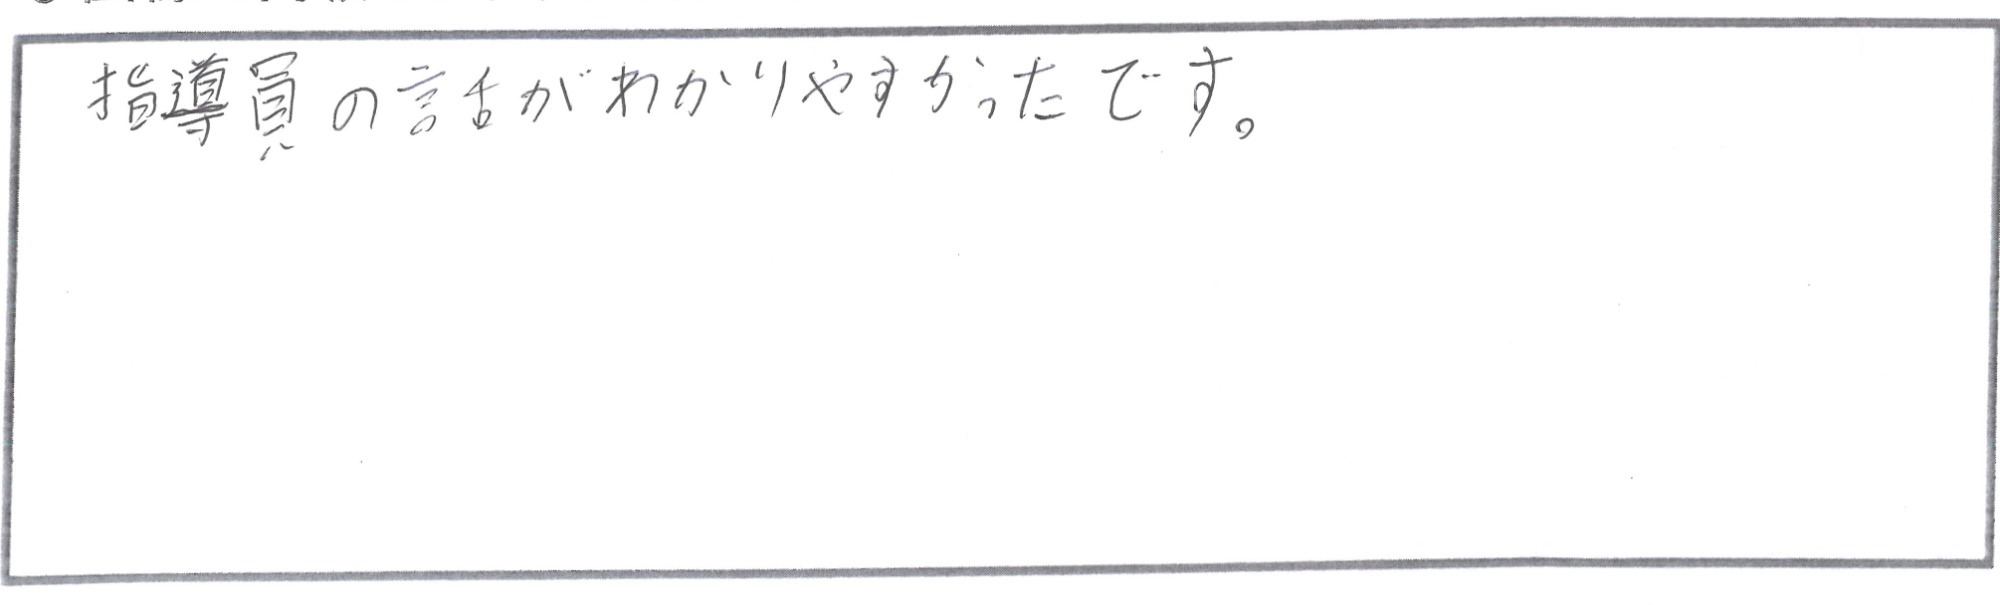 指導員の話がわかりやすかったです。